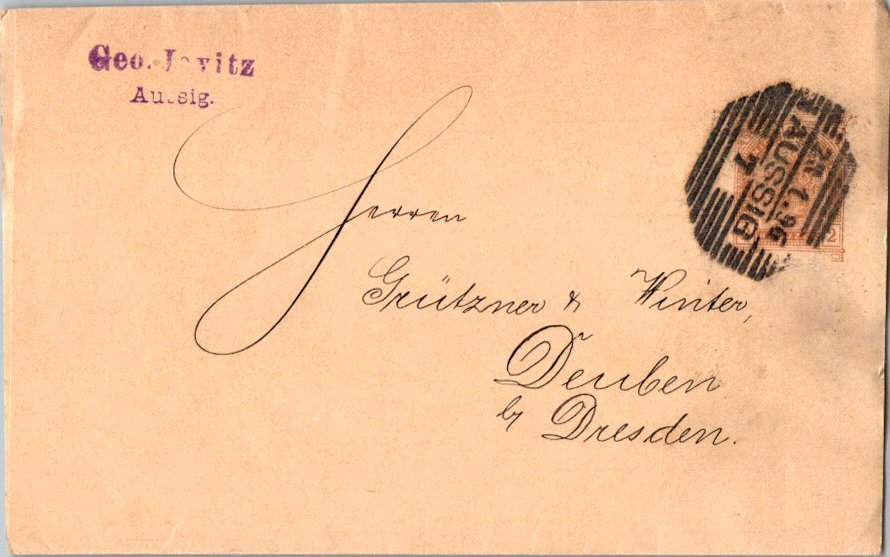 Geo. Jovitz
Aussig.
28.1.96
AUSSIG
7
2
Herren
Grützner & Winter,
Deuben
by Dresden.